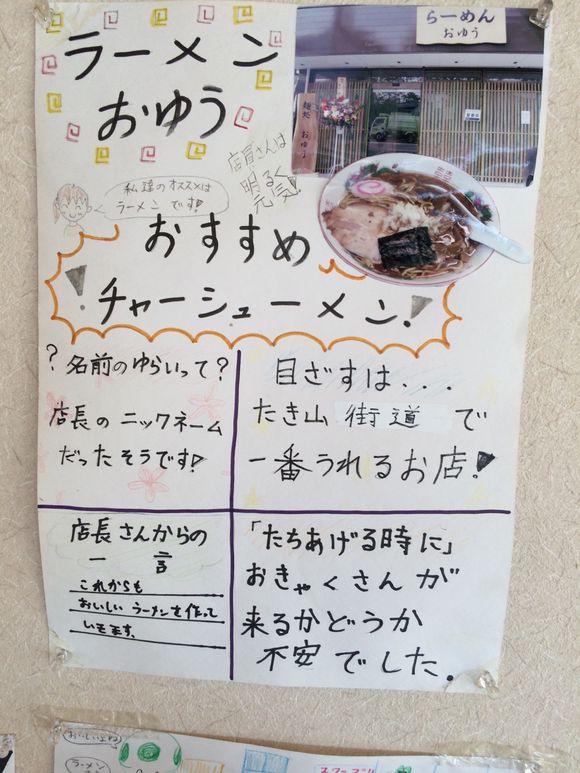 ラーメン
おゆう
らーめん
おゆう
麺処 おゆう
店員さんは
明るく
元気!
私達のオススメは
ラーメンです!
おすすめ
!チャーシューメン!
?名前のゆらいって?
店長のニックネーム
だったそうです!
目ざすは...
たき山街道で
一番うれるお店!
店長さんからの
一言
これからも
おいしいラーメンを作って
いきます。
「たちあげる時に」
おきゃくさんが
来るかどうか
不安でした。
おいしいよね
ラーメン